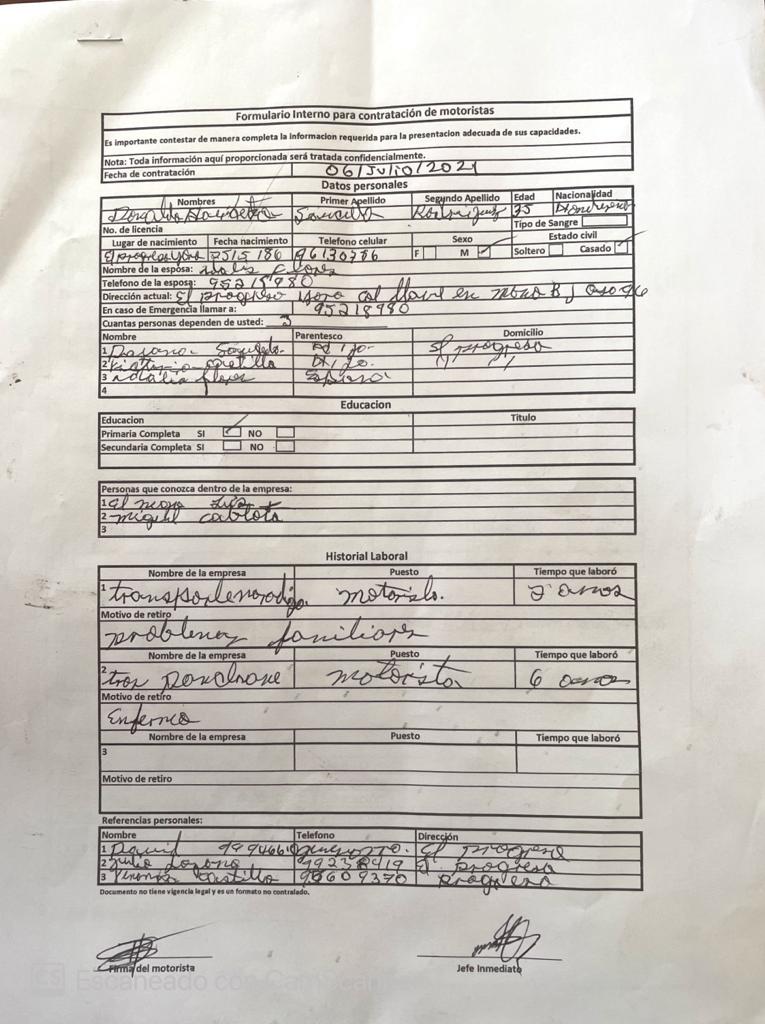 Formulario Interno para contratación de motoristas
Es importante contestar de manera completa la informacion requerida para la presentation adecuada de sus capacidades.
Nota: Toda información aquí proporcionada será tratada confidencialmente.
Fecha de contratación 06/Julio/2021
Datos personales
Nombres Primer Apellido Segundo Apellido Edad Nacionalidad
Rodriguez 35
No. de licencia Tipo de Sangre
Lugar de nacimiento Fecha nacimiento Telefono celular Sexo Estado civil
El progreso Yoro 96130776 F M Soltero Casado
Nombre de la esposa: Flores
Telefono de la esposa: 95218980
Dirección actual: El progreso Yoro col llave en mano B
En caso de Emergencia llamar a: 95218980
Cuantas personas dependen de usted: 3
Nombre Parentesco Domicilio
1 El progreso
2 Castillo
3 Natalia flores Esposa
4
Educacion
Educacion Titulo
Primaria Completa SI NO
Secundaria Completa SI NO
Personas que conozca dentro de la empresa:
1 El negro
2 miguel
3
Historial Laboral
Nombre de la empresa Puesto Tiempo que laboró
1 motorista. 2 anos
Motivo de retiro
problemas familiares
Nombre de la empresa Puesto Tiempo que laboró
2 motorista 6 anos
Motivo de retiro
Enfermo
Nombre de la empresa Puesto Tiempo que laboró
3
Motivo de retiro
Referencias personales:
Nombre Telefono Dirección
1 David El progreso
2 Julio Lozano 99238419 El progreso
3 Castillo 95609370 progreso
Documento no tiene vigencia legal y es un formato no contralado.
Firma del motorista Jefe Inmediato
CS Escaneado con CamScanner